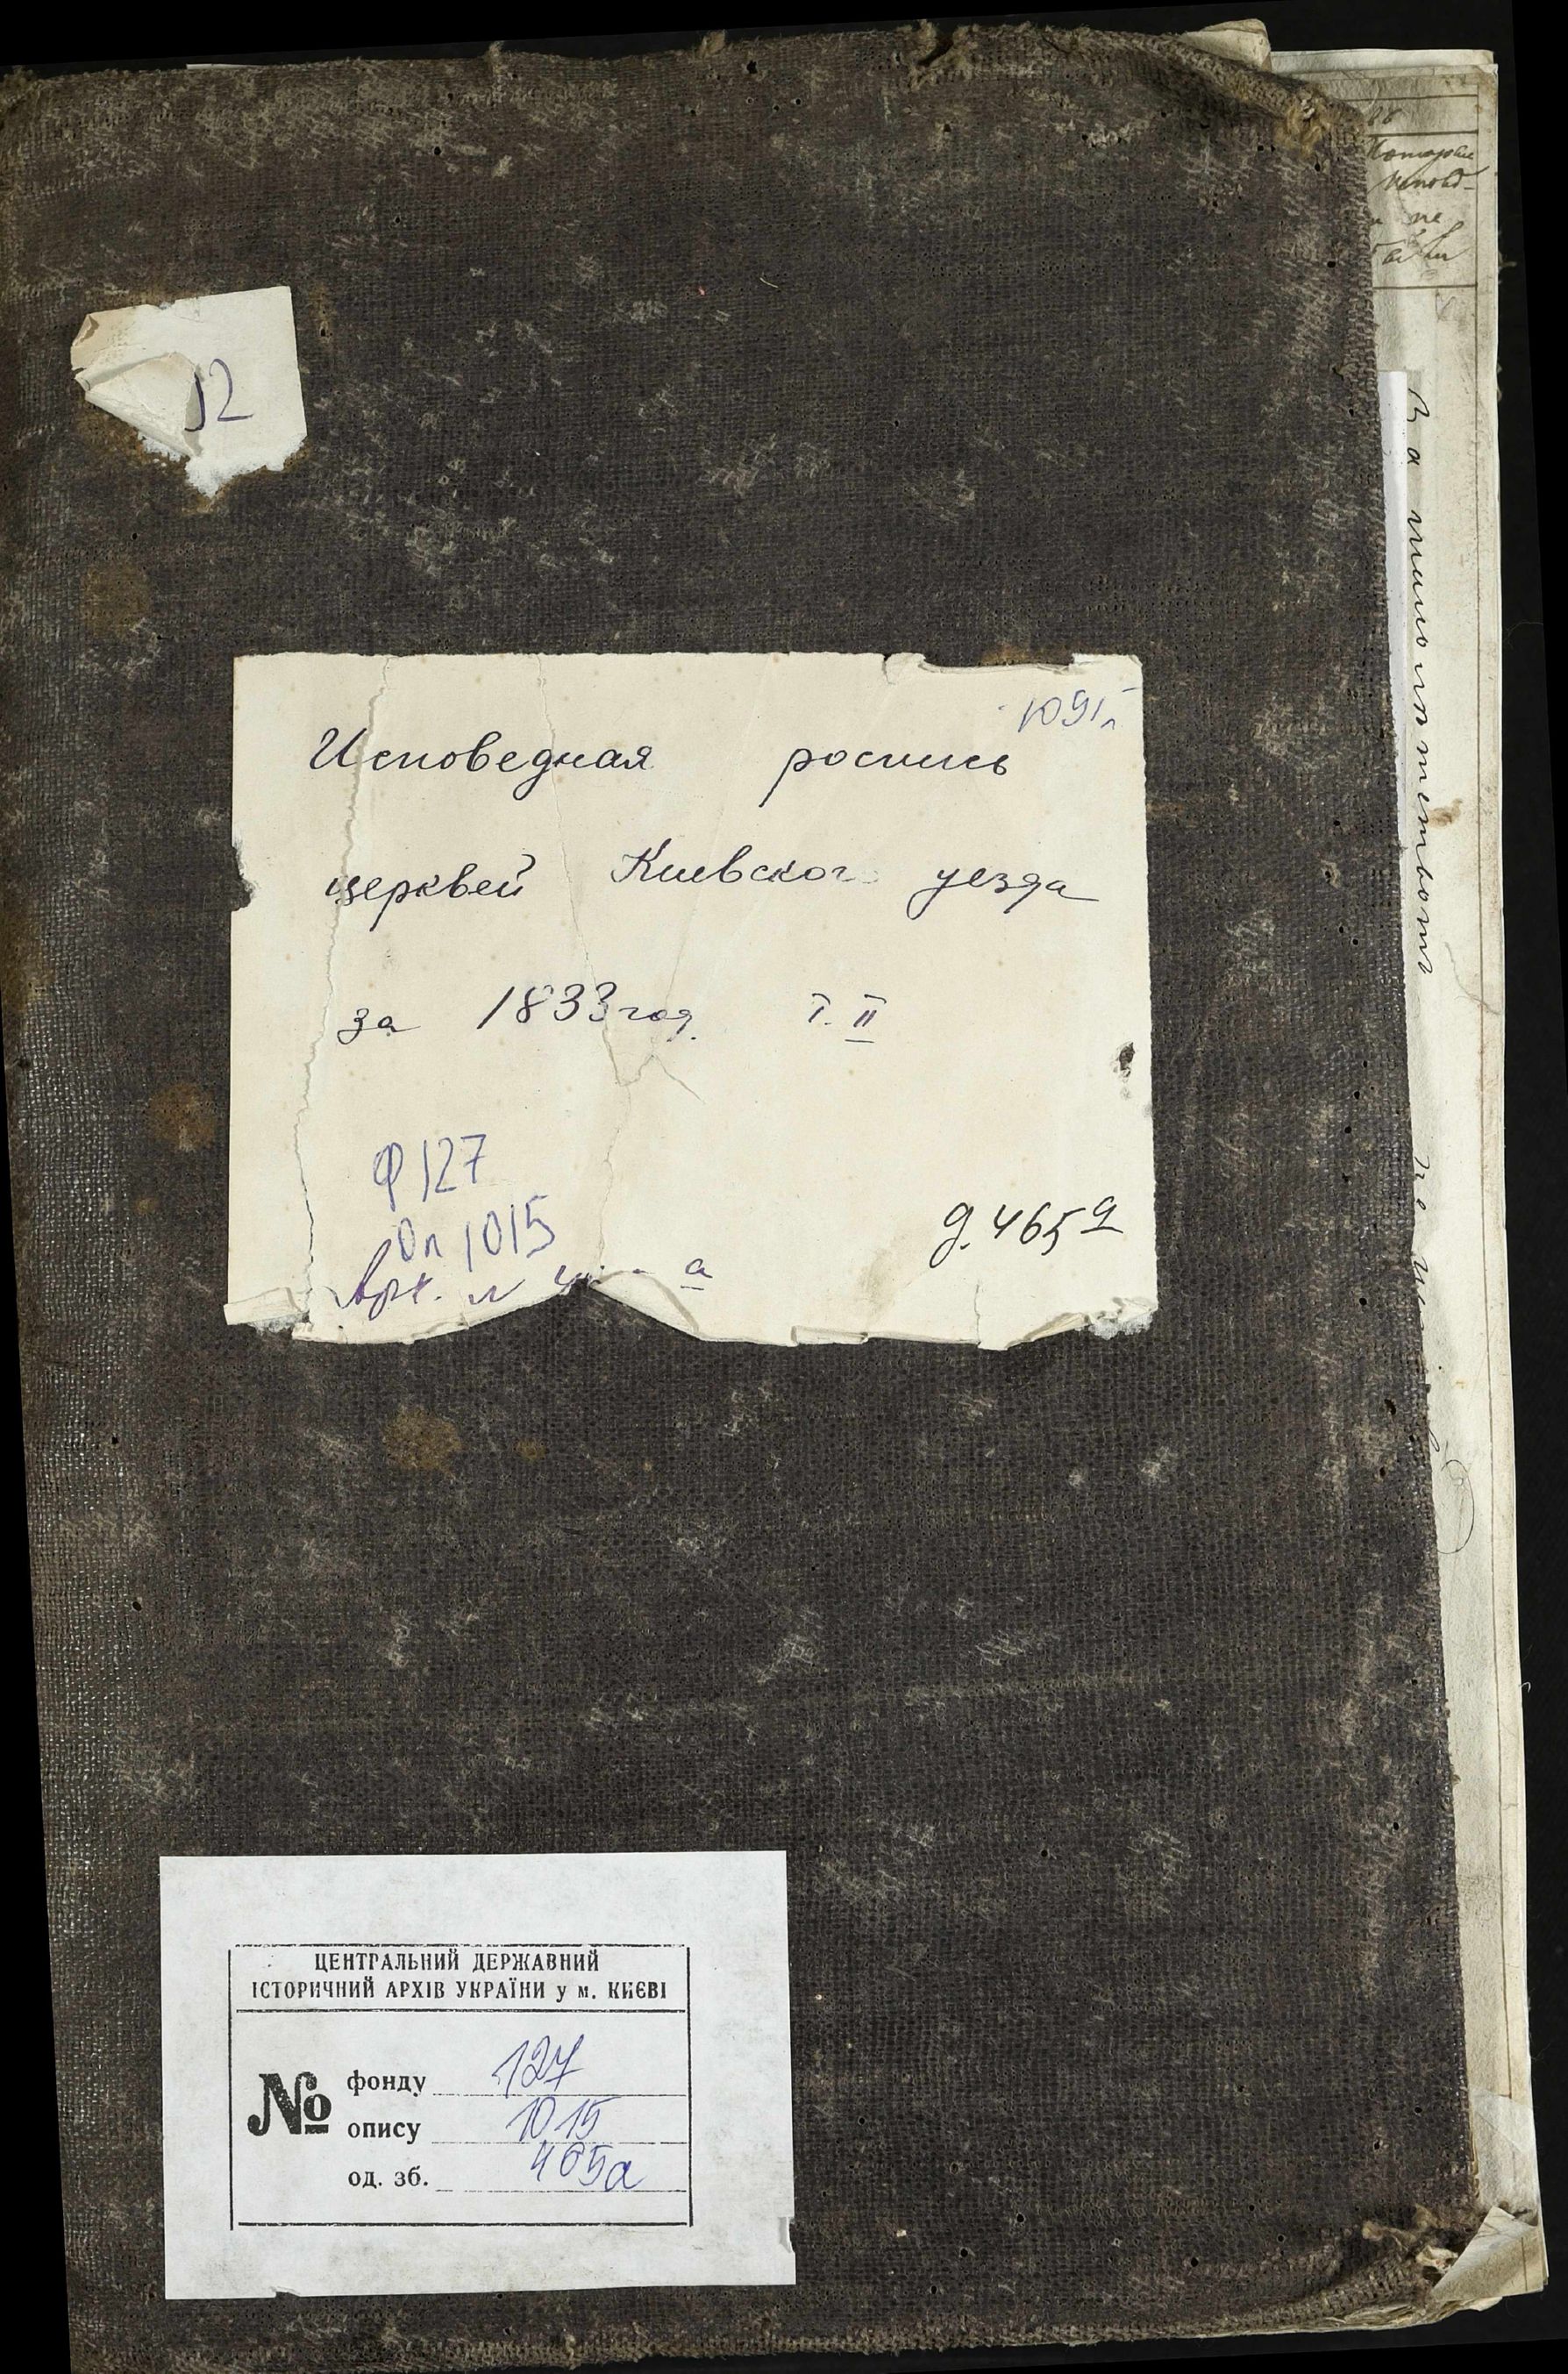 12
1091л
Исповедная роспись
церквей Киевского уезда
за 1833 год. Т. II
Ф 127
Оп 1015
д. 465а
Арх. № а
ЦЕНТРАЛЬНИЙ ДЕРЖАВНИЙ
ІСТОРИЧНИЙ АРХІВ УКРАЇНИ у м. КИЄВІ
№
фонду 127
опису 1015
од. зб. 465а
не